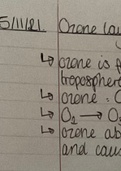 5/11/21 Ozone la
↳ ozone is f
troposphere
↳ ozone :
↳ O₂ → O
↳ ozone ab
and caus